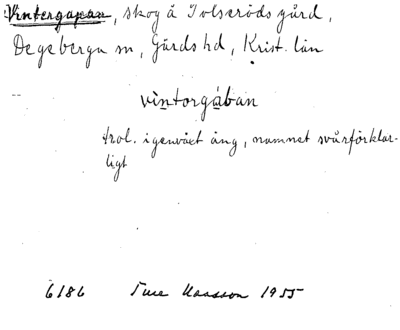 Vintergapan, skog å Tolseröds gård,
Degeberga sn, Gärds hd, Krist. län
vintorgában
trol. igenväxt äng, namnet svårförklar-
ligt
6186 Ture 1955